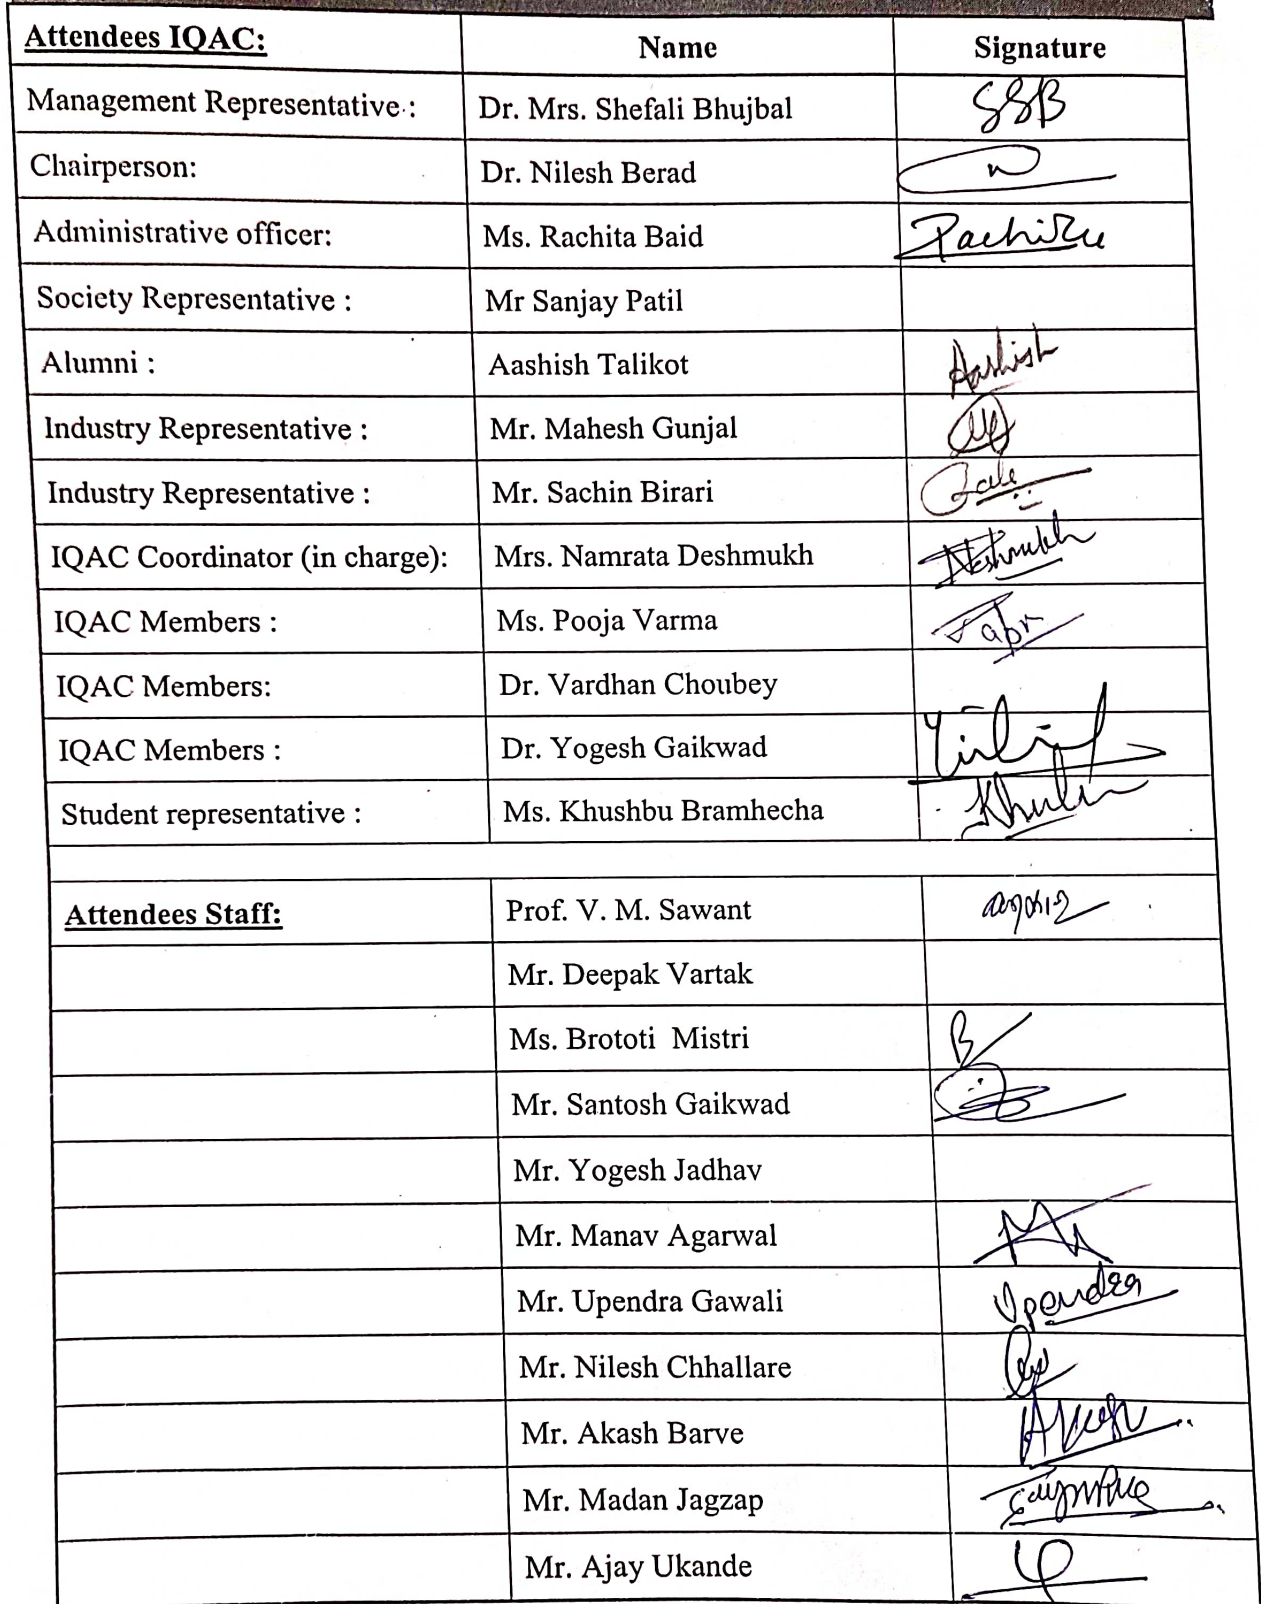 Attendees IQAC: Name Signature
Management Representative : Dr. Mrs. Shefali Bhujbal SSB
Chairperson: Dr. Nilesh Berad
Administrative officer: Ms. Rachita Baid
Society Representative : Mr Sanjay Patil
Alumni : Aashish Talikot Aashish
Industry Representative : Mr. Mahesh Gunjal
Industry Representative : Mr. Sachin Birari
IQAC Coordinator (in charge): Mrs. Namrata Deshmukh
IQAC Members : Ms. Pooja Varma
IQAC Members: Dr. Vardhan Choubey
IQAC Members : Dr. Yogesh Gaikwad
Student representative : Ms. Khushbu Bramhecha
Attendees Staff: Prof. V. M. Sawant
Mr. Deepak Vartak
Ms. Brototi Mistri B
Mr. Santosh Gaikwad
Mr. Yogesh Jadhav
Mr. Manav Agarwal
Mr. Upendra Gawali Upendra
Mr. Nilesh Chhallare
Mr. Akash Barve
Mr. Madan Jagzap
Mr. Ajay Ukande